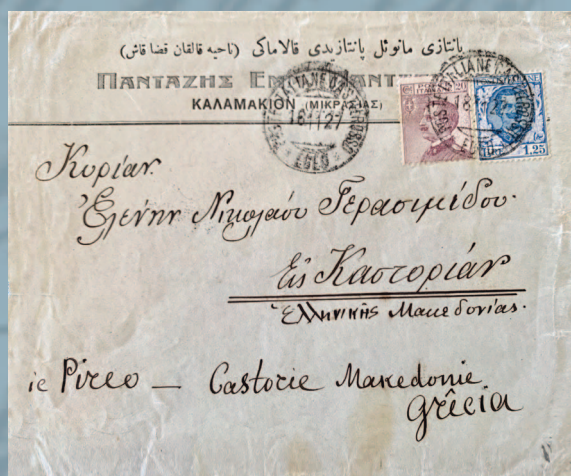 پانتازی مانوئل پانتازیدی قالاماکی (ناحیه قالقان قضا قاش)
ΠΑΝΤΑΖΗΣ
ΚΑΛΑΜΑΚΙΟΝ (ΜΙΚΡΑΣΙΑΣ)
POSTE ITALIANE
16.11.27
EGEO
1.25
Κυρίαν
Ἑλένην Νικολάου Γερασιμίδου.
Εἰς Καστορίαν
Ἑλληνικῆς Μακεδονίας.
Pireo — Castorie Makedonie
grêcia